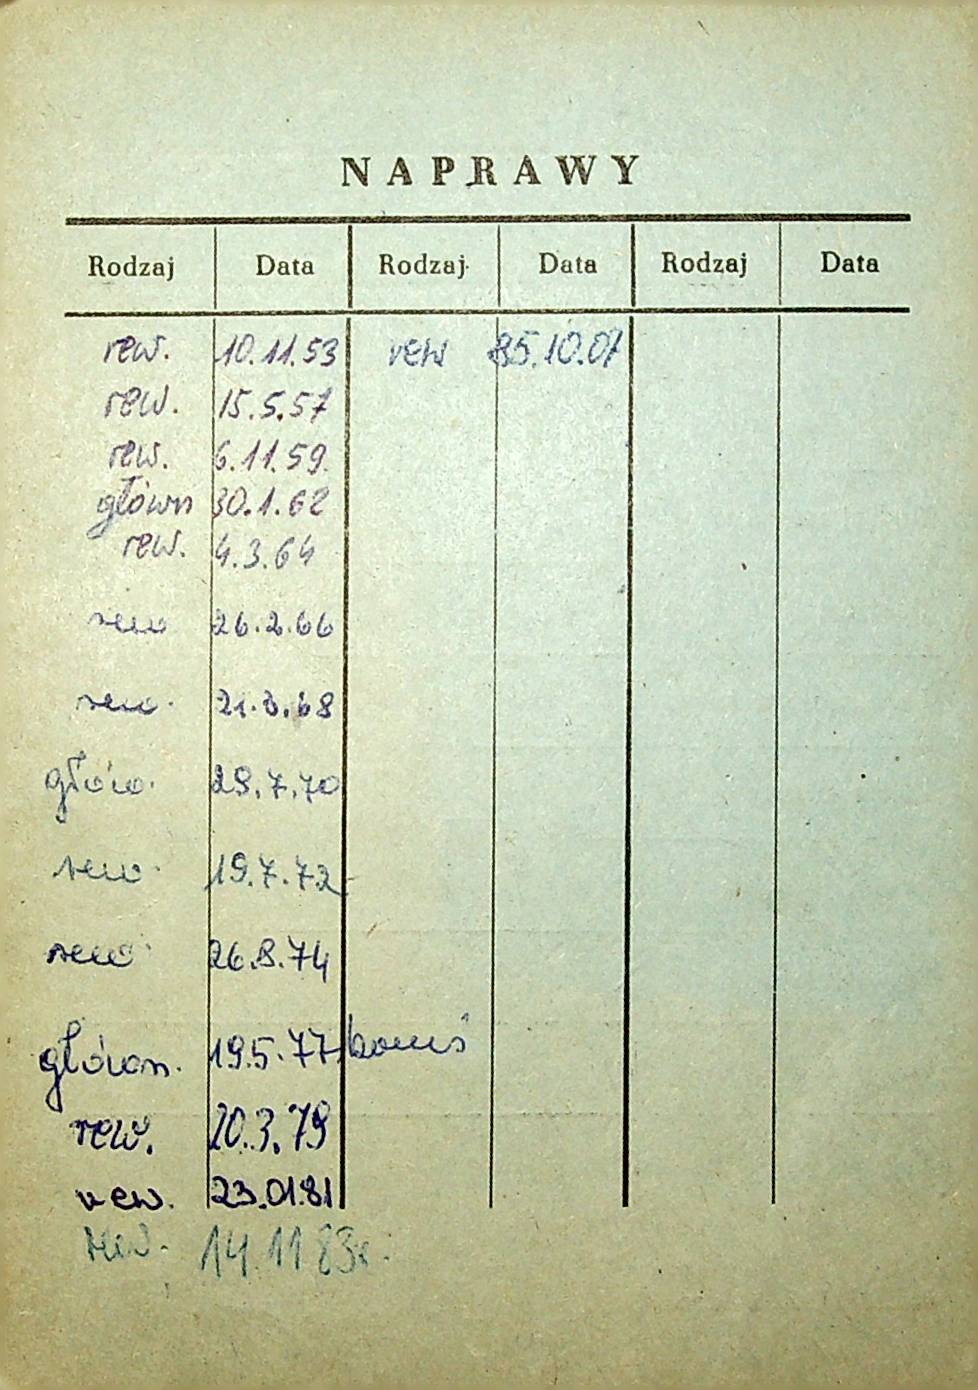 NAPRAWY
Rodzaj Data Rodzaj Data Rodzaj Data
rew. 10.11.53 rew 85.10.07
rew. 15.5.57
rew. 6.11.59.
główn 30.1.62
rew. 4.3.64
rew 26.2.66
rew. 21.3.68
głów. 29.7.70
rew. 19.7.72
rew. 26.8.74
główn. 19.5.77
rew. 20.3.79
rew. 23.01.81
rew. 14.11.83r.